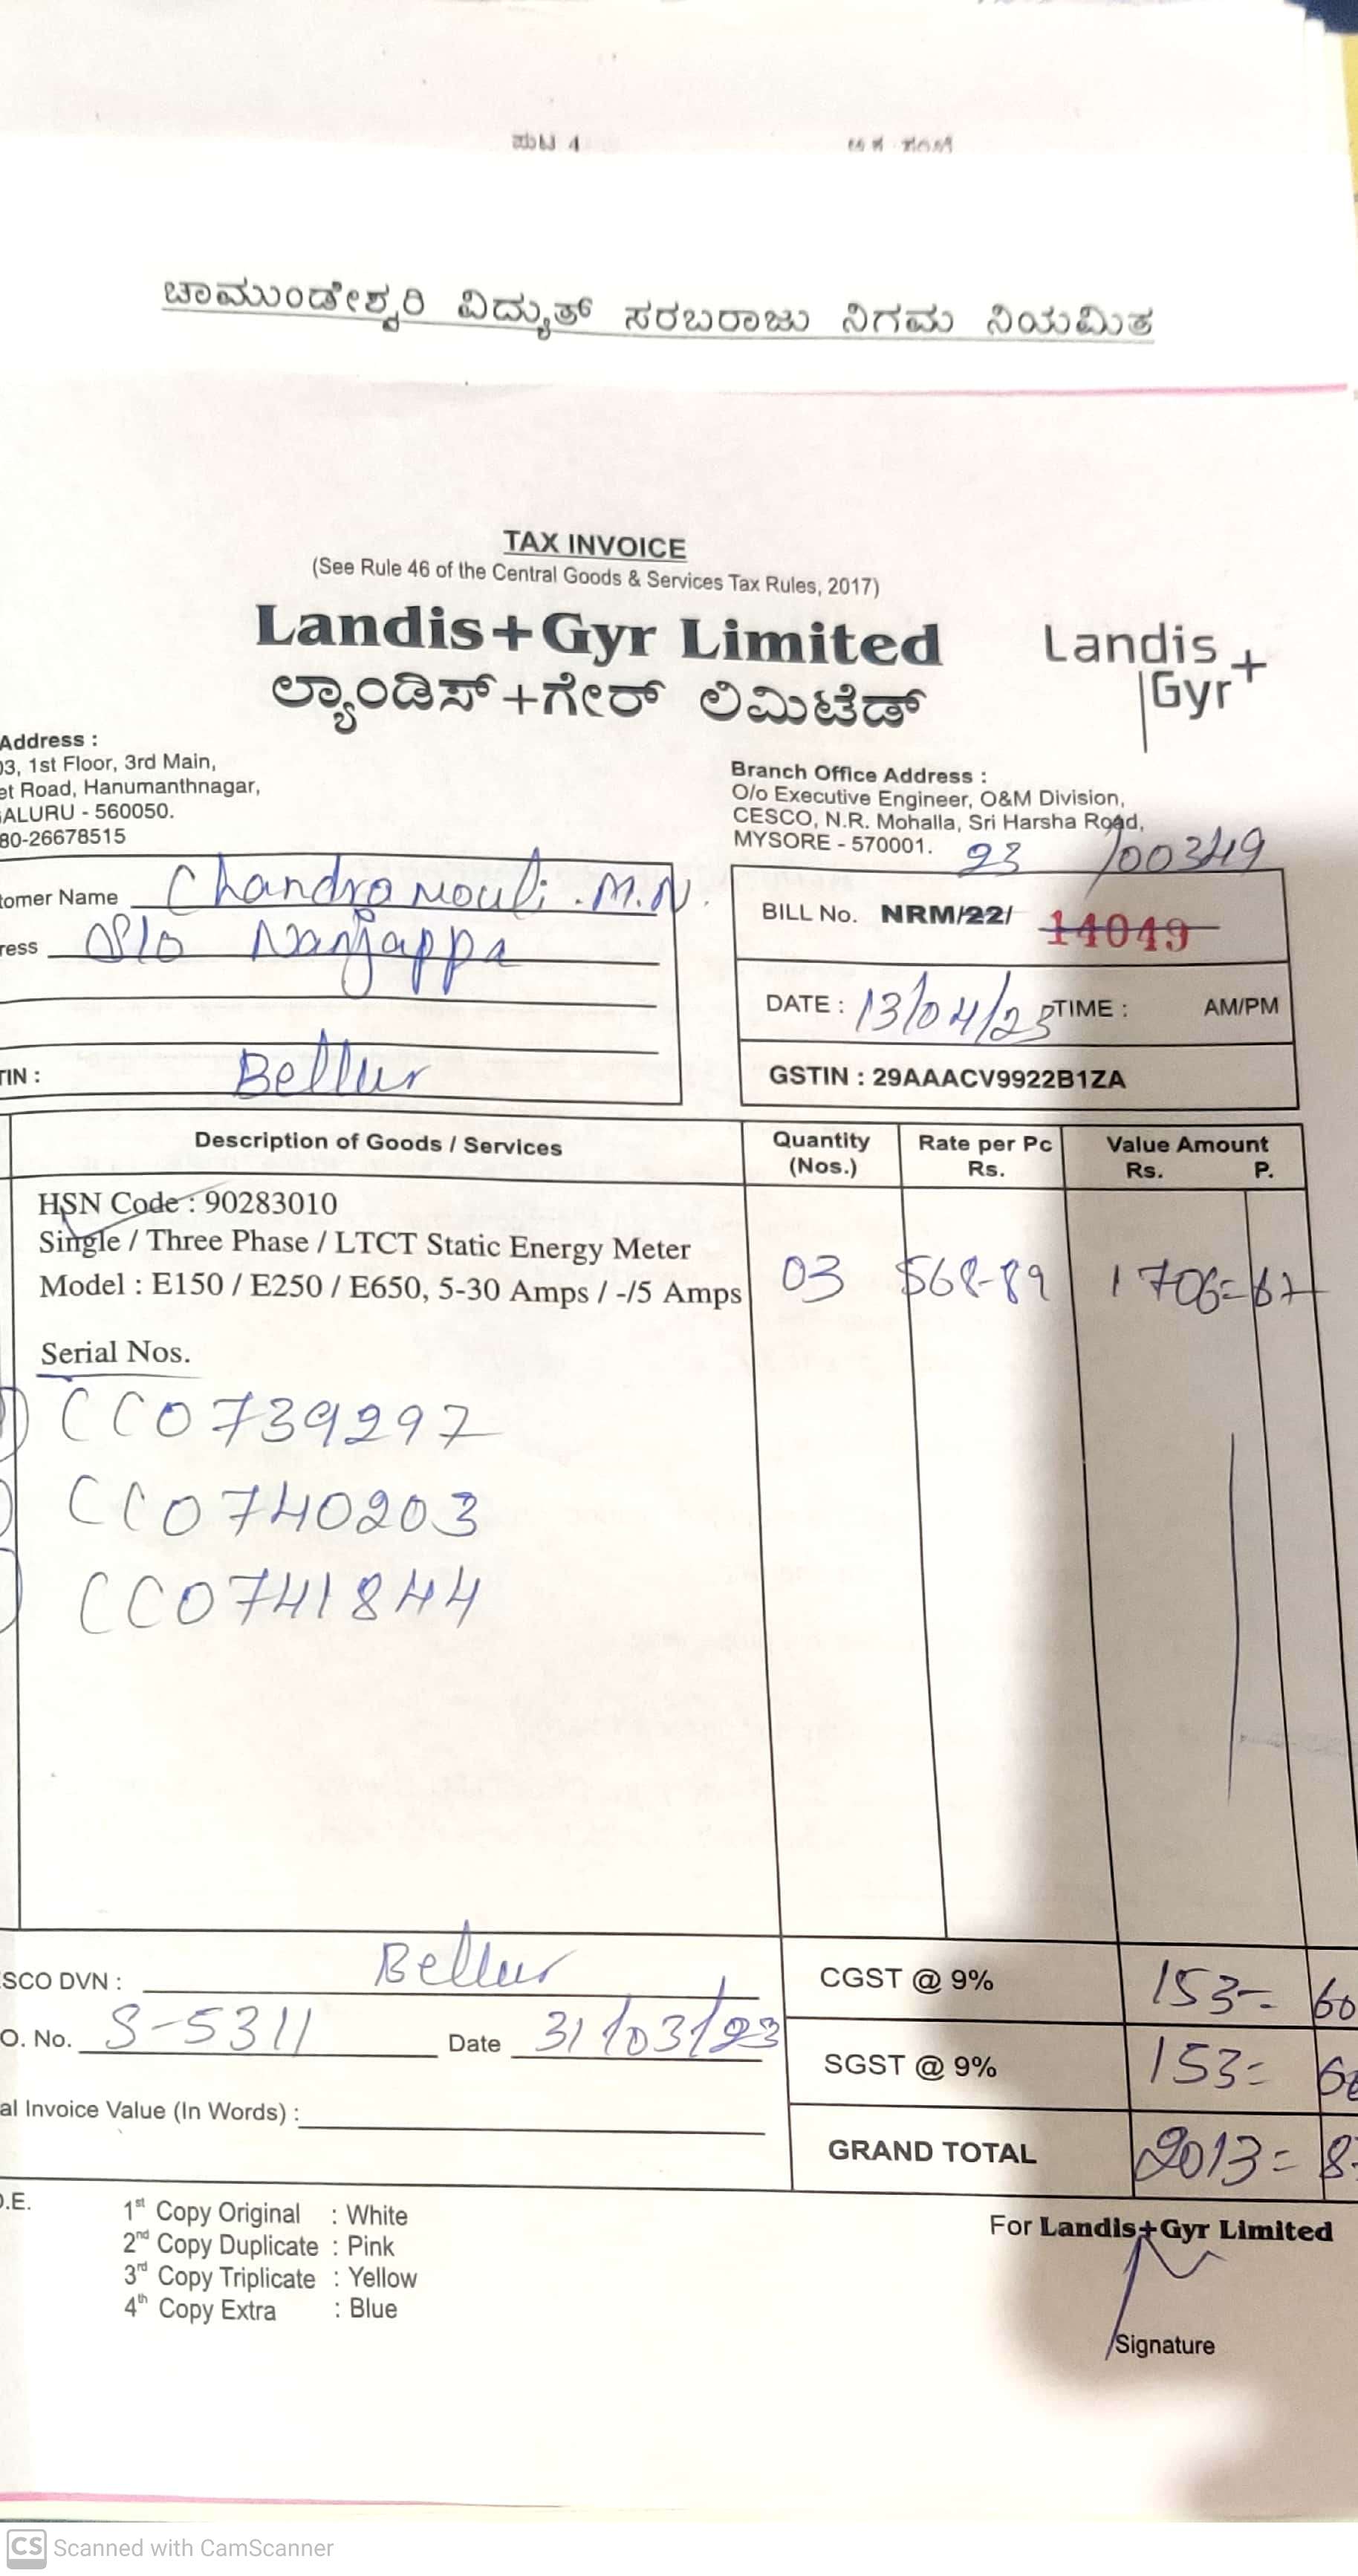 ಪುಟ 4
ಚಾಮುಂಡೇಶ್ವರಿ ವಿದ್ಯುತ್ ಸರಬರಾಜು ನಿಗಮ ನಿಯಮಿತ
TAX INVOICE
(See Rule 46 of the Central Goods & Services Tax Rules, 2017)
Landis+Gyr Limited
ಲ್ಯಾಂಡಿಸ್+ಗೇರ್ ಲಿಮಿಟೆಡ್
Landis
Gyr+
Address :
03, 1st Floor, 3rd Main,
et Road, Hanumanthnagar,
ALURU - 560050.
80-26678515
Branch Office Address :
O/o Executive Engineer, O&M Division,
CESCO, N.R. Mohalla, Sri Harsha Road,
MYSORE - 570001.
23 /00349
tomer Name Chandramouli . M.N.
ress Nanjappa
TIN : Bellur
BILL No. NRM/22/ 14049
DATE : 13/04/23 TIME : AM/PM
GSTIN : 29AAACV9922B1ZA
Description of Goods / Services Quantity (Nos.) Rate per Pc Rs. Value Amount Rs. P.
HSN Code : 90283010
Single / Three Phase / LTCT Static Energy Meter
Model : E150 / E250 / E650, 5-30 Amps / -/5 Amps 03 568-89 1706=67
Serial Nos.
CC0739297
CC0740203
CC0741844
SCO DVN : Bellur
O. No. S-5311 Date 31/03/23
al Invoice Value (In Words) :
CGST @ 9% 153=60
SGST @ 9% 153=60
GRAND TOTAL 2013=8
O.E.
1st Copy Original : White
2nd Copy Duplicate : Pink
3rd Copy Triplicate : Yellow
4th Copy Extra : Blue
For Landis+Gyr Limited
Signature
CS Scanned with CamScanner